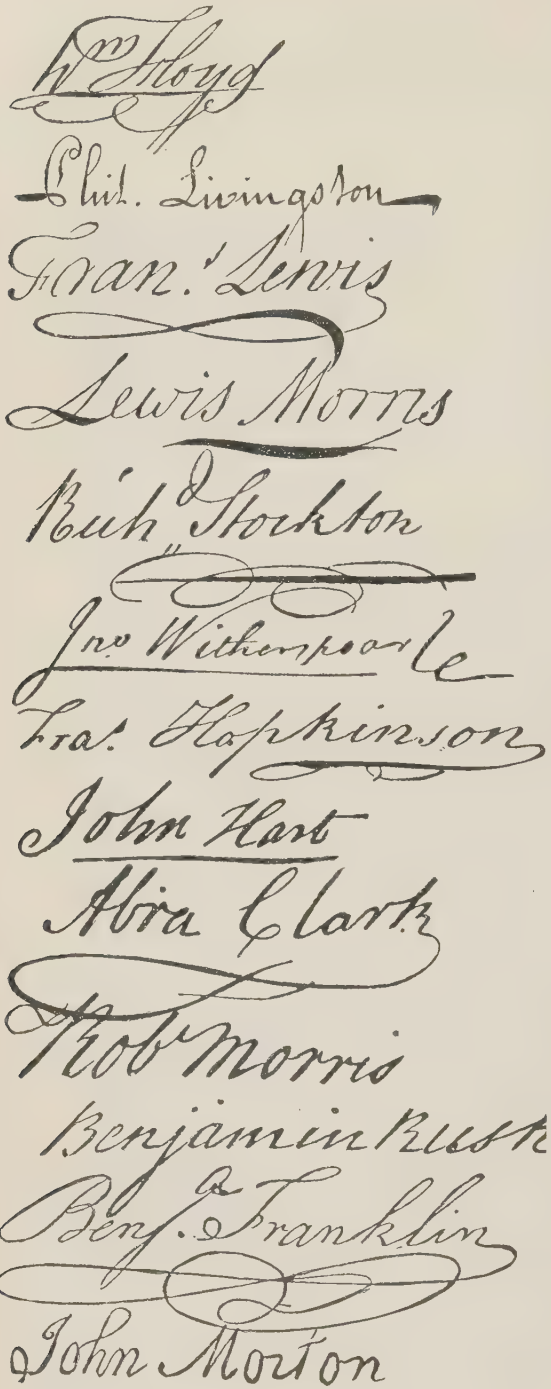 Wm Floyd
Phil. Livingston
Fran.s Lewis
Lewis Morris
Richd Stockton
Jno Witherspoon
Fras. Hopkinson
John Hart
Abra Clark
Robt Morris
Benjamin Rush
Benja. Franklin
John Morton